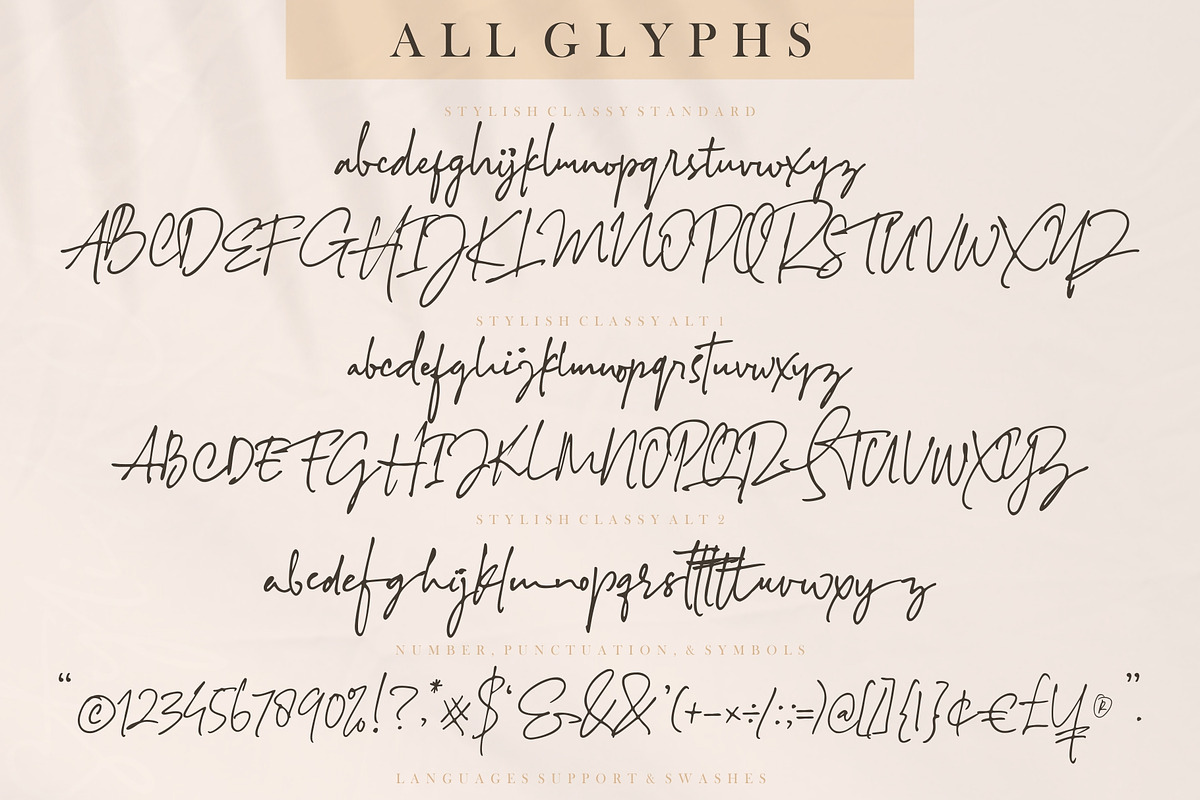 ALL GLYPHS
STYLISH CLASSY STANDARD
abcdefghijklmnopqrstuvwxyz
ABCDEFGHIJKLMNOPQRSTUVWXYZ
STYLISH CLASSY ALT 1
abcdefghijklmnopqrstuvwxyz
ABCDEFGHIJKLMNOPQRSTUVWXYZ
STYLISH CLASSY ALT 2
abcdefghijklmnopqrsttttttuvwxyz
NUMBER, PUNCTUATION, & SYMBOLS
“©1234567890%!?,*#$‘&&&’(+-×÷/:;=)@[/]{|}¢€£¥®”.
LANGUAGES SUPPORT & SWASHES